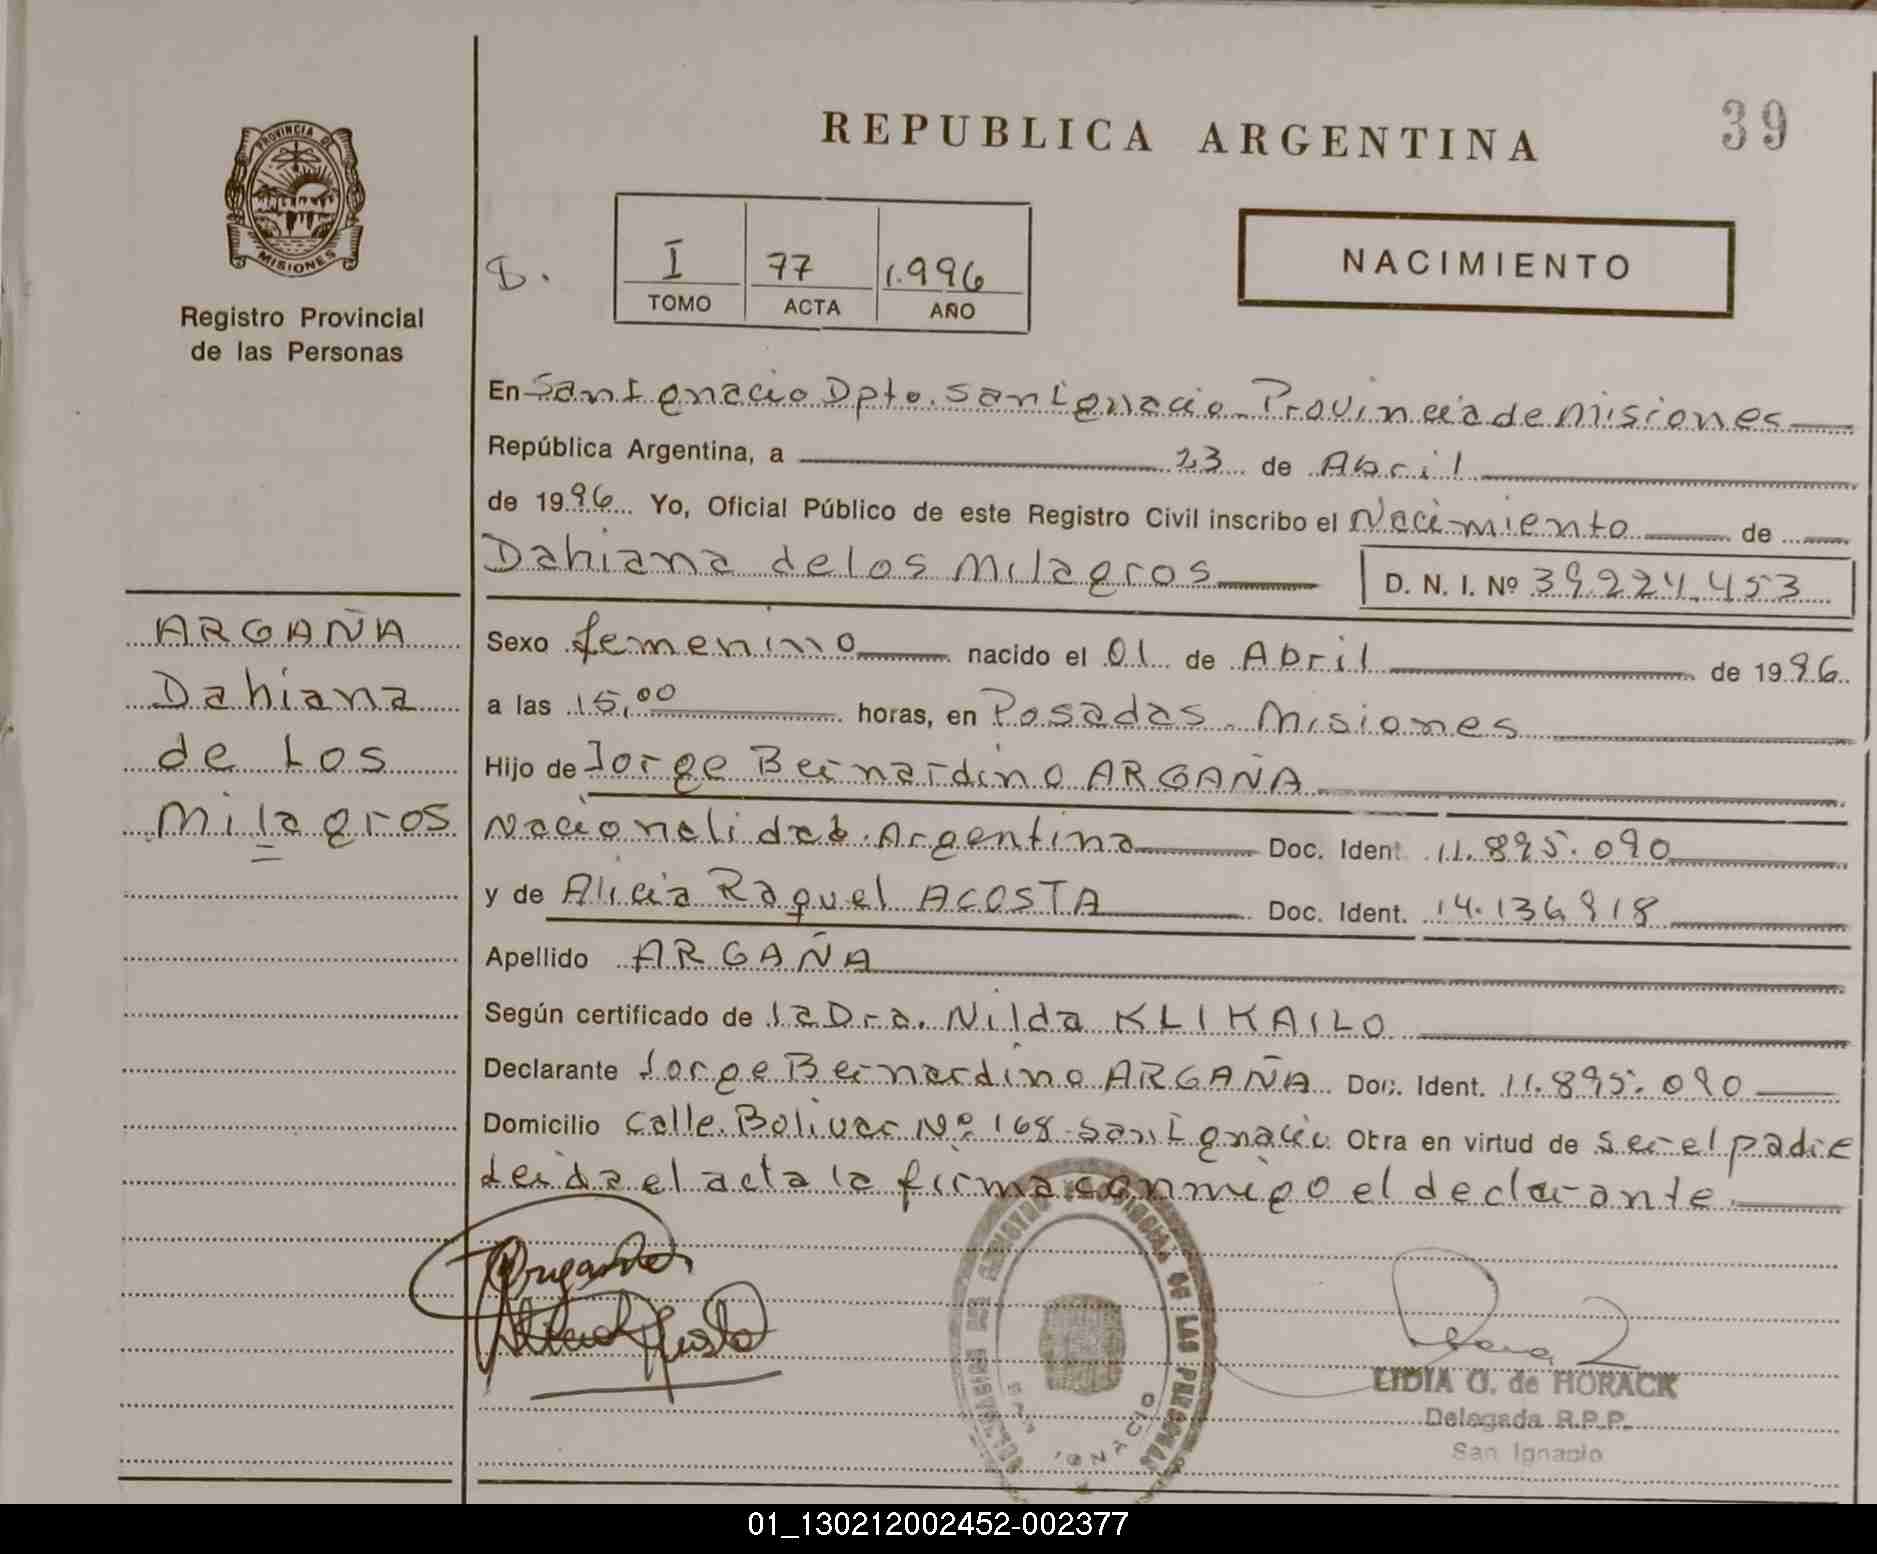 REPUBLICA ARGENTINA
39
PROVINCIA DE
MISIONES
Registro Provincial
de las Personas
I 77 1.996
TOMO ACTA AÑO
NACIMIENTO
En San Ignacio Dpto. San Ignacio - Provincia de Misiones
República Argentina, a 23 de Abril
de 1996 Yo, Oficial Público de este Registro Civil inscribo el Nacimiento de
Dahiana de los Milagros D. N. I. Nº 39.224.453
ARGAÑA
Dahiana
de Los
Milagros
Sexo femenino nacido el 01 de Abril de 1996
a las 15,00 horas, en Posadas - Misiones
Hijo de Jorge Bernardino ARGAÑA
Nacionalidad Argentina Doc. Ident. 11.895.090
y de Alicia Raquel ACOSTA Doc. Ident. 14.136.918
Apellido ARGAÑA
Según certificado de la Dra. Nilda KLIKAILO
Declarante Jorge Bernardino ARGAÑA Doc. Ident. 11.895.090
Domicilio Calle Bolivar Nº 168 - San Ignacio Obra en virtud de ser el padre
Leida el acta la firma conmigo el declarante
LIDIA G. de HORACK
Delegada R.P.P.
San Ignacio
DE LAS PERSONAS
IGNACIO
01_130212002452-002377